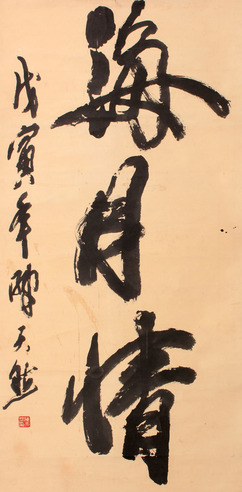 海月情
戊寅年陳天然